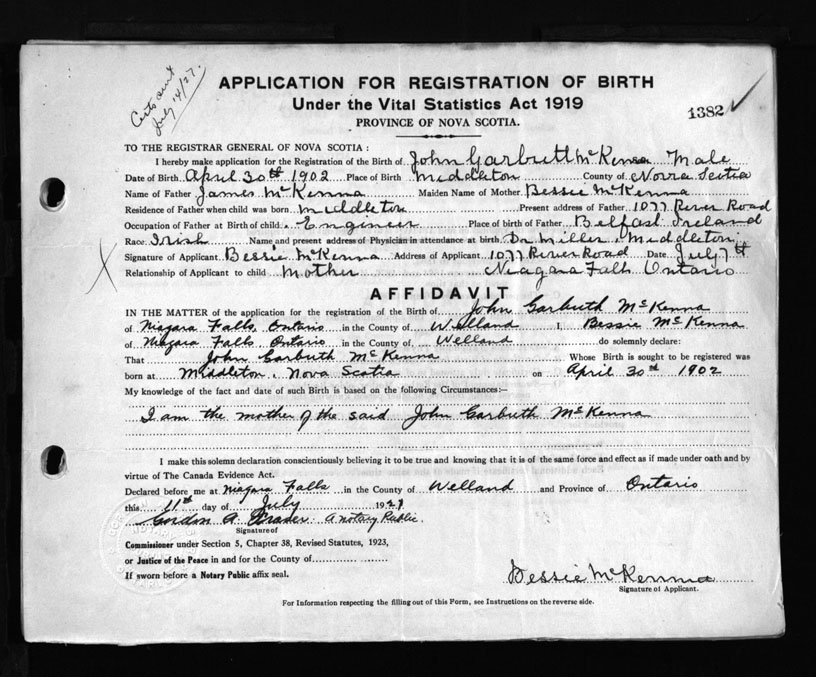 Certs out
July 14/27.
APPLICATION FOR REGISTRATION OF BIRTH
Under the Vital Statistics Act 1919
PROVINCE OF NOVA SCOTIA.
1382
TO THE REGISTRAR GENERAL OF NOVA SCOTIA :
I hereby make application for the Registration of the Birth of John Garbutt McKenna Male
Date of Birth April 30th 1902 Place of Birth Middleton County of Nova Scotia
Name of Father James McKenna Maiden Name of Mother Bessie McKenna
Residence of Father when child was born Middleton Present address of Father 1077 River Road
Occupation of Father at Birth of child Engineer Place of birth of Father Belfast Ireland
Race Irish Name and present address of Physician in attendance at birth Dr Miller, Middleton
Signature of Applicant Bessie McKenna Address of Applicant 1077 River Road Date July 7th
Relationship of Applicant to child Mother Niagara Falls Ontario
AFFIDAVIT
IN THE MATTER of the application for the registration of the Birth of John Garbuth McKenna
of Niagara Falls, Ontario in the County of Welland I, Bessie McKenna
of Niagara Falls Ontario in the County of Welland do solemnly declare:
That John Garbuth McKenna Whose Birth is sought to be registered was
born at Middleton, Nova Scotia on April 30th 1902
My knowledge of the fact and date of such Birth is based on the following Circumstances:—
I am the mother of the said John Garbuth McKenna
I make this solemn declaration conscientiously believing it to be true and knowing that it is of the same force and effect as if made under oath and by
virtue of The Canada Evidence Act.
Declared before me at Niagara Falls in the County of Welland and Province of Ontario
this 11th day of July 1927
Gordon A. Fraser a notary Public.
Signature of
Commissioner under Section 5, Chapter 38, Revised Statutes, 1923,
or Justice of the Peace in and for the County of
If sworn before a Notary Public affix seal.
Bessie McKenna
Signature of Applicant.
For Information respecting the filling out of this Form, see Instructions on the reverse side.